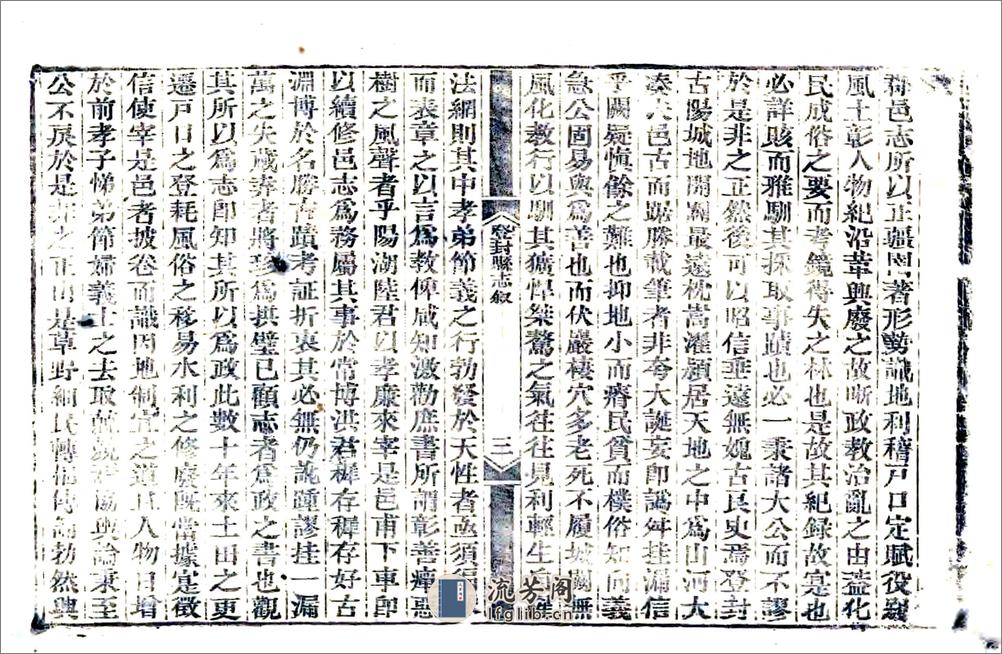 邑志所以正疆圉著形勢識地利稽戸口定賦役窺
風土彰人物紀沿革興廢之故晰政教治亂之由蓋化
民成俗之要而考鏡得失之林也是故其紀録故寔也
必詳賅而雅馴其採取事蹟也必一秉諸大公而不謬
於是非之正然後可以昭信垂遠無媿古良史焉登封
古陽城地開闢最遠枕嵩濯潁居天地之中爲山河大
湊夫邑古而踞勝載筆者非夸大誕妄即譌舛挂漏信
乎闕疑愼餘之難也抑地小而瘠民貧而樸俗知向義
急公固易與爲善也而伏巖棲穴多老死不履城闕無
風化教行以馴其獷悍桀驁之氣往往見利輕生
登封縣志叙
三
法網則其中孝弟節義之行勃發於天性者亟須
而表章之以言爲教俾咸知激勸庶書所謂彰善癉惡
樹之風聲者乎陽湖陸君以孝廉來宰是邑甫下車即
以續修邑志爲務屬其事於常博洪君稺存稺存好古
淵博於名勝古蹟考証折衷其必無仍訛踵謬挂一漏
萬之失蒇𢍆者將珍爲拱璧已顧志者爲政之書也觀
其所以爲志即知其所以爲政此數十年來土田之更
遷戸口之登耗風俗之移易水利之修廢旣當據寔徵
信使宰是邑者披卷而識因地制宜之道且人物日增
於前孝子悌弟節婦義士之去取協輿論秉至
公不戾於是非之正由是草野細民轉相勃然興
流芳阁
lfglib.cn